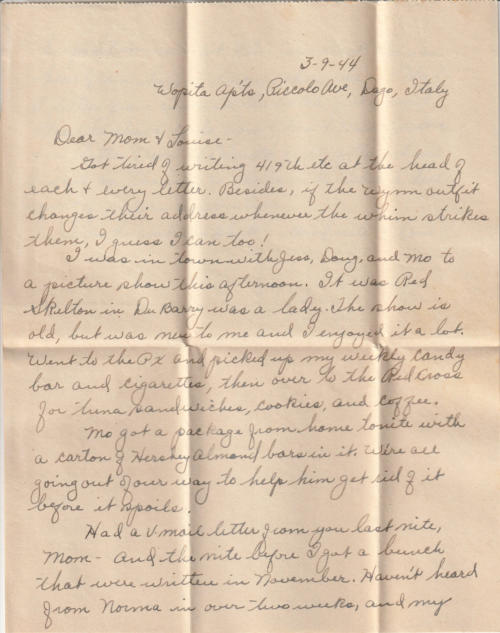 3-9-44
Wopita Apts, Piccolo Ave, Dago, Italy
Dear Mom & Louise-
Got tired of writing 419th etc at the head of
each & every letter. Besides, if the Wynn outfit
changes their address whenever the whim strikes
them, I guess I can too!
I was in town with Jess, Doug, and Mo to
a picture show this afternoon. It was Red
Skelton in Du Barry was a lady. The show is
old, but was new to me and I enjoyed it a lot.
Went to the PX and picked up my weekly candy
bar and cigarettes, then over to the Red Cross
for tuna sandwiches, cookies, and coffee.
Mo got a package from home tonite with
a carton of Hershey Almond bars in it. We're all
going out of our way to help him get rid of it
before it spoils.
Had a V mail letter from you last nite,
Mom- and the nite before I got a bunch
that were written in November. Haven't heard
from Norma in over two weeks, and my